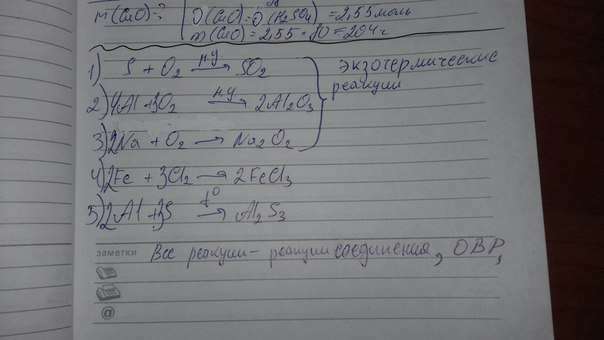 m(CuO)-? ν(CuO)=ν(H₂SO₄) = 2,55 моль
m(CuO) = 2,55 · 80 = 204 г
1) S + O₂ —ну→ SO₂
2) 4Al + 3O₂ —ну→ 2Al₂O₃
3) 2Na + O₂ → Na₂O₂
экзотермические
реакции
4) 2Fe + 3Cl₂ → 2FeCl₃
5) 2Al + 3S —t°→ Al₂S₃
заметки Все реакции - реакции соединения, ОВР,
@